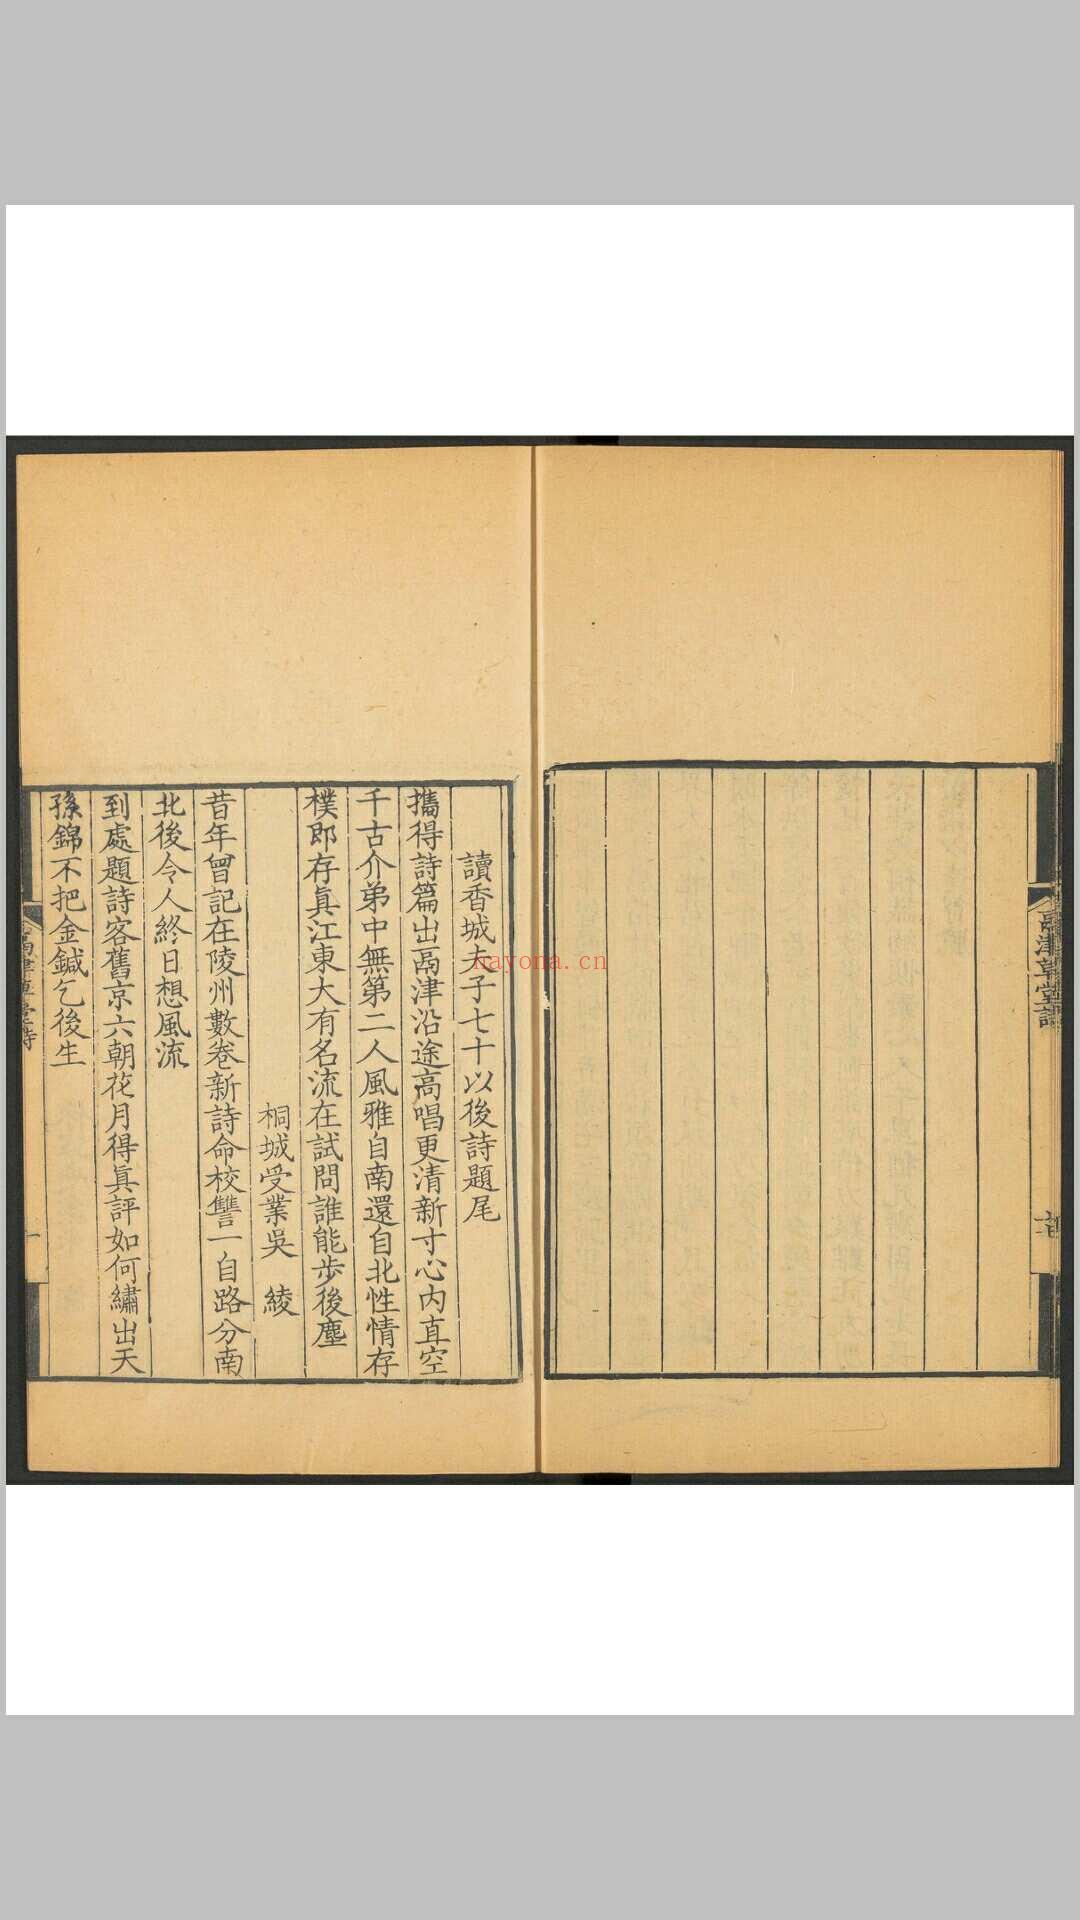 鬲津草堂詩
讀香城夫子七十以後詩題尾
攜得詩篇出鬲津沿途高唱更清新寸心內直空
千古介弟中無第二人風雅自南還自北性情存
樸即存眞江東大有名流在試問誰能步後塵
桐城受業吳　綾
昔年曾記在陵州數卷新詩命校讐一自路分南
北後令人終日想風流
到處題詩客舊京六朝花月得眞評如何繡出天
孫錦不把金鍼乞後生
鬲津草堂詩
一
nayona.cn